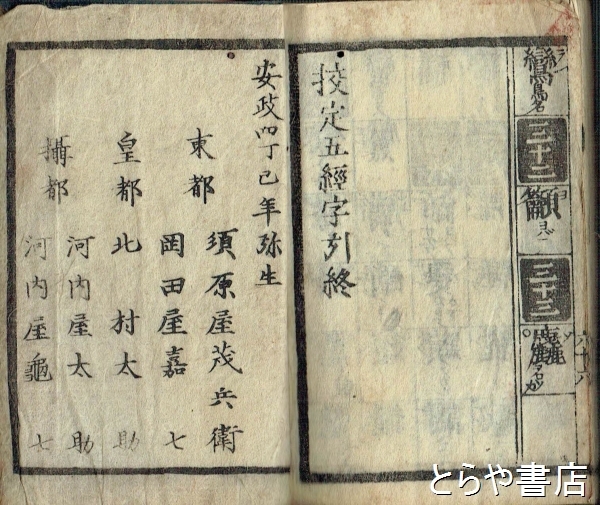 鸞
鳥名
三十二
籲
三十三
六十六
挍定五經字引終
安政四丁巳年弥生
東都 須原屋茂兵衛
岡田屋嘉七
皇都 北村太助
攝都 河内屋太助
河内屋龜七
とらや書店